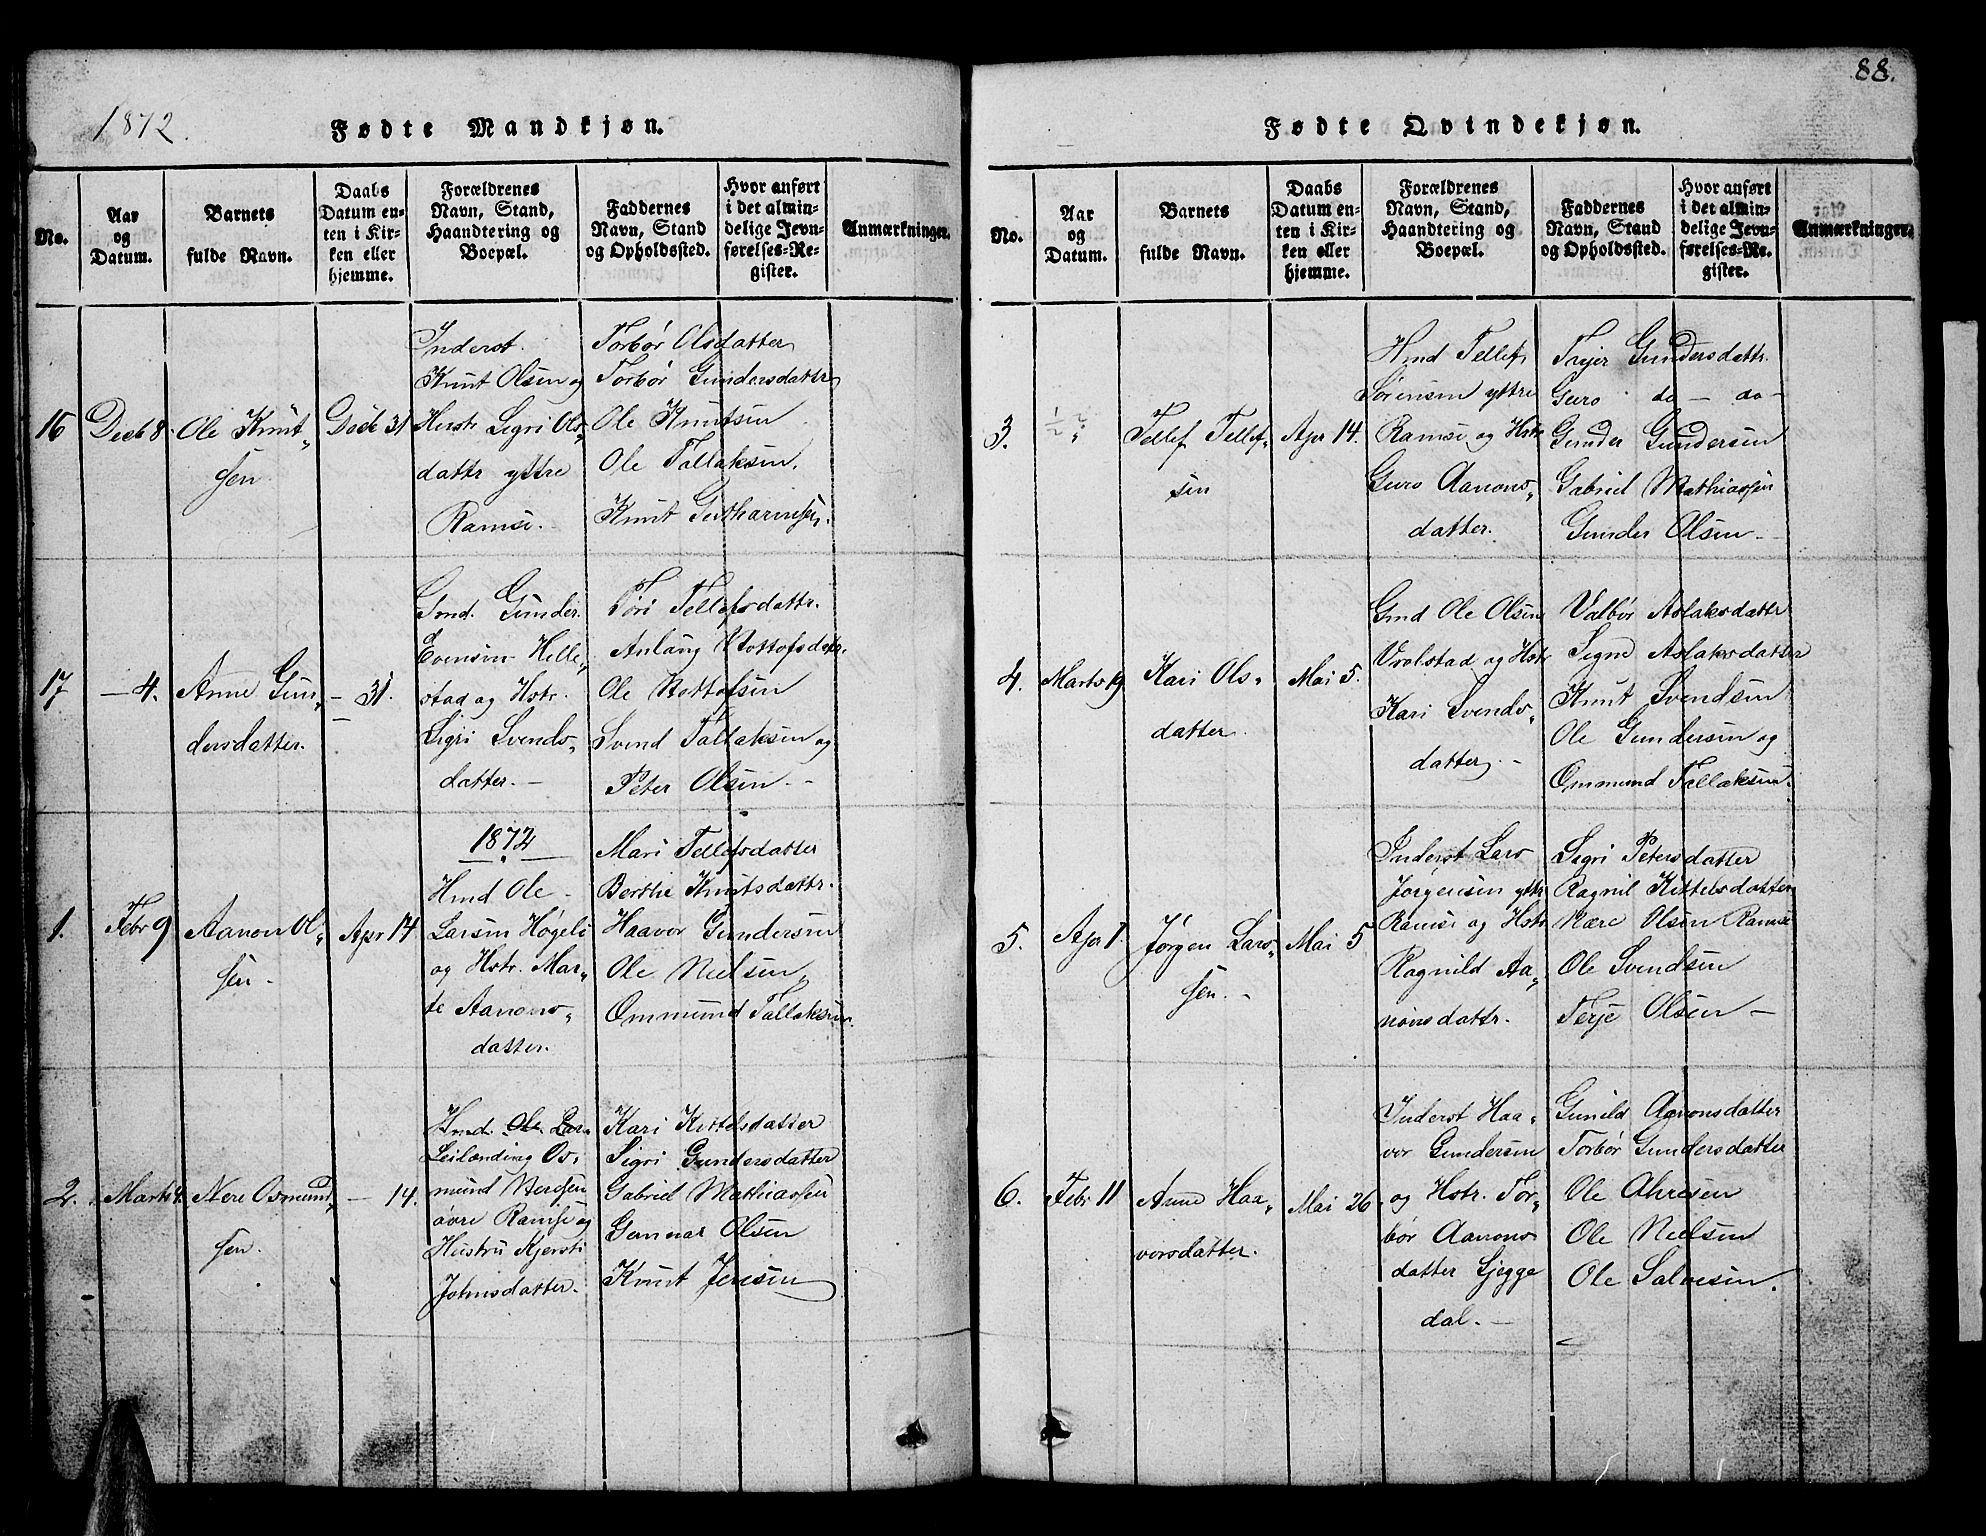 1872.
Fødte Mandkjøn.
No.
Aar og Datum.
Barnets fulde Navn.
Daabs Datum enten i Kirken eller hjemme.
Forældrenes Navn, Stand, Haandtering og Boepæl.
Faddernes Navn, Stand og Opholdssted.
Hvor anført i det almindelige Jevnførelses-Register.
Anmærkninger.
16
Decb 8.
Ole Knut„
sen
Decb 31
Inderst.
Knut Olsen og
Hustr Sigri Ols
dattr yttre
Ramse.
Torbør Olsdatter
Torbør Gundersdattr
Ole Knutsen
Ole Tallaksen.
Knut Guthormsen.
17
— 4.
Anne Gun„
dersdatter.
— 31.
Gmd. Gunder
Evensen Helle„
stad og Hstr.
Sigri Svends„
datter. —
Töri Tellefsdattr.
Anlaug Nottofsdatr.
Ole Nottofsen
Svend Tallaksen og
Peter Olsen —
1872
1.
Febr 9
Aanon Ol„
sen.
Apr 14
Hmd Ole
Larsen Høgeli
og Hstr. Mar„
te Aanons„
datter.
Mari Tellefsdatter
Berthe Knutsdattr.
Haavor Gundersen
Ole Nielsen,
Ommund Tallaksen.
2.
Marts 4.
Nere Osmund„
sen.
— 14.
Hmd. Ole Lar
Leilænding Os„
mund Nersen
øvre Ramse og
Hustru Kjersti
Johnsdatter.
Kari Kittelsdatter
Sigri Gundersdatter
Gabriel Mathiassen
Gunnar Olsen
Knut Jensen
88.
Fødte Qvindekjøn.
No.
Aar og Datum.
Barnets fulde Navn.
Daabs Datum enten i Kirken eller hjemme.
Forældrenes Navn, Stand, Haandtering og Boepæl.
Faddernes Navn, Stand og Opholdssted.
Hvor anført i det almindelige Jevnførelses-Register.
Anmærkninger.
3.
Tellef Tellef„
sen
Apr 14.
Hmd Tellef
Sørensen yttre
Ramse og Hstr
Guro Aanons„
datter.
Tarjer Gundersdattr.
Guro do — do —
Gunder Gundersen
Gabriel Mathiassen
Gunder Olsen —
4.
Marts 19
Kari Ols„
datter.
Mai 5.
Gmd Ole Olsen
Vralstad og Hstr
Kari Svends„
datter. —
Valbør Aslaksdatter
Signe Aslaksdatter
Knut Svendsen
Ole Gundersen og
Ommund Tallaksen.
5.
Apr 1.
Jørgen Lars„
sen. —
Mai 5
Inderst Lars
Jørgensen yttr
Ramse og Hstr
Ragnild Aa„
nonsdattr.
Sigri Petersdatter
Ragnil Kittelsdatter
Nære Olsen Ramse
Ole Svendsen
Terje Olsen —
6.
Febr 11
Anne Haa„
vorsdatter.
Mai 26
Inderst Haa„
vor Gundersen
og Hstr. Tor„
bør Aanons
datter Ljøgge
dal. —
Gunild Aanonsdatter
Torbør Gundersdatter
Ole Ahresen
Ole Nielsen
Ole Salvesen.